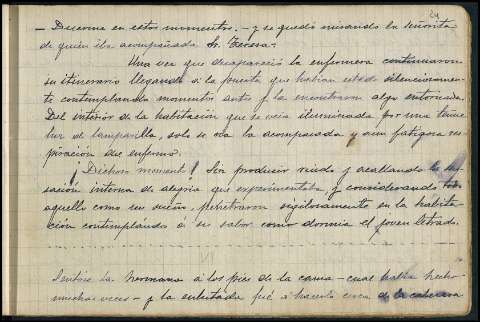 24
— Descansa en estos momentos. — y se quedó mirando la señorita
de quien iba acompañada Sr. Teresa.
Una vez que desapareció la enfermera continuaron
su itinerario llegando a la puerta que habían estado silenciosamen-
te contemplando momentos antes y la encontraron algo entornada.
Del interior de la habitación que se veía iluminada por una tenue
luz de lamparilla, solo se oía la acompasada y aun fatigosa res-
piración del enfermo.
¡Dichoso momento! Sin producir ruido y acallando la sen-
sación interna de alegría que experimentaba, y considerando todo
aquello como un sueño, penetraron sigilosamente en la habita-
ción contemplando a su sabor como dormía el joven letrado.
Sentóse la hermana a los pies de la cama — cual había hecho
muchas veces — y la enlutada fué a hacerlo cerca de la cabecera